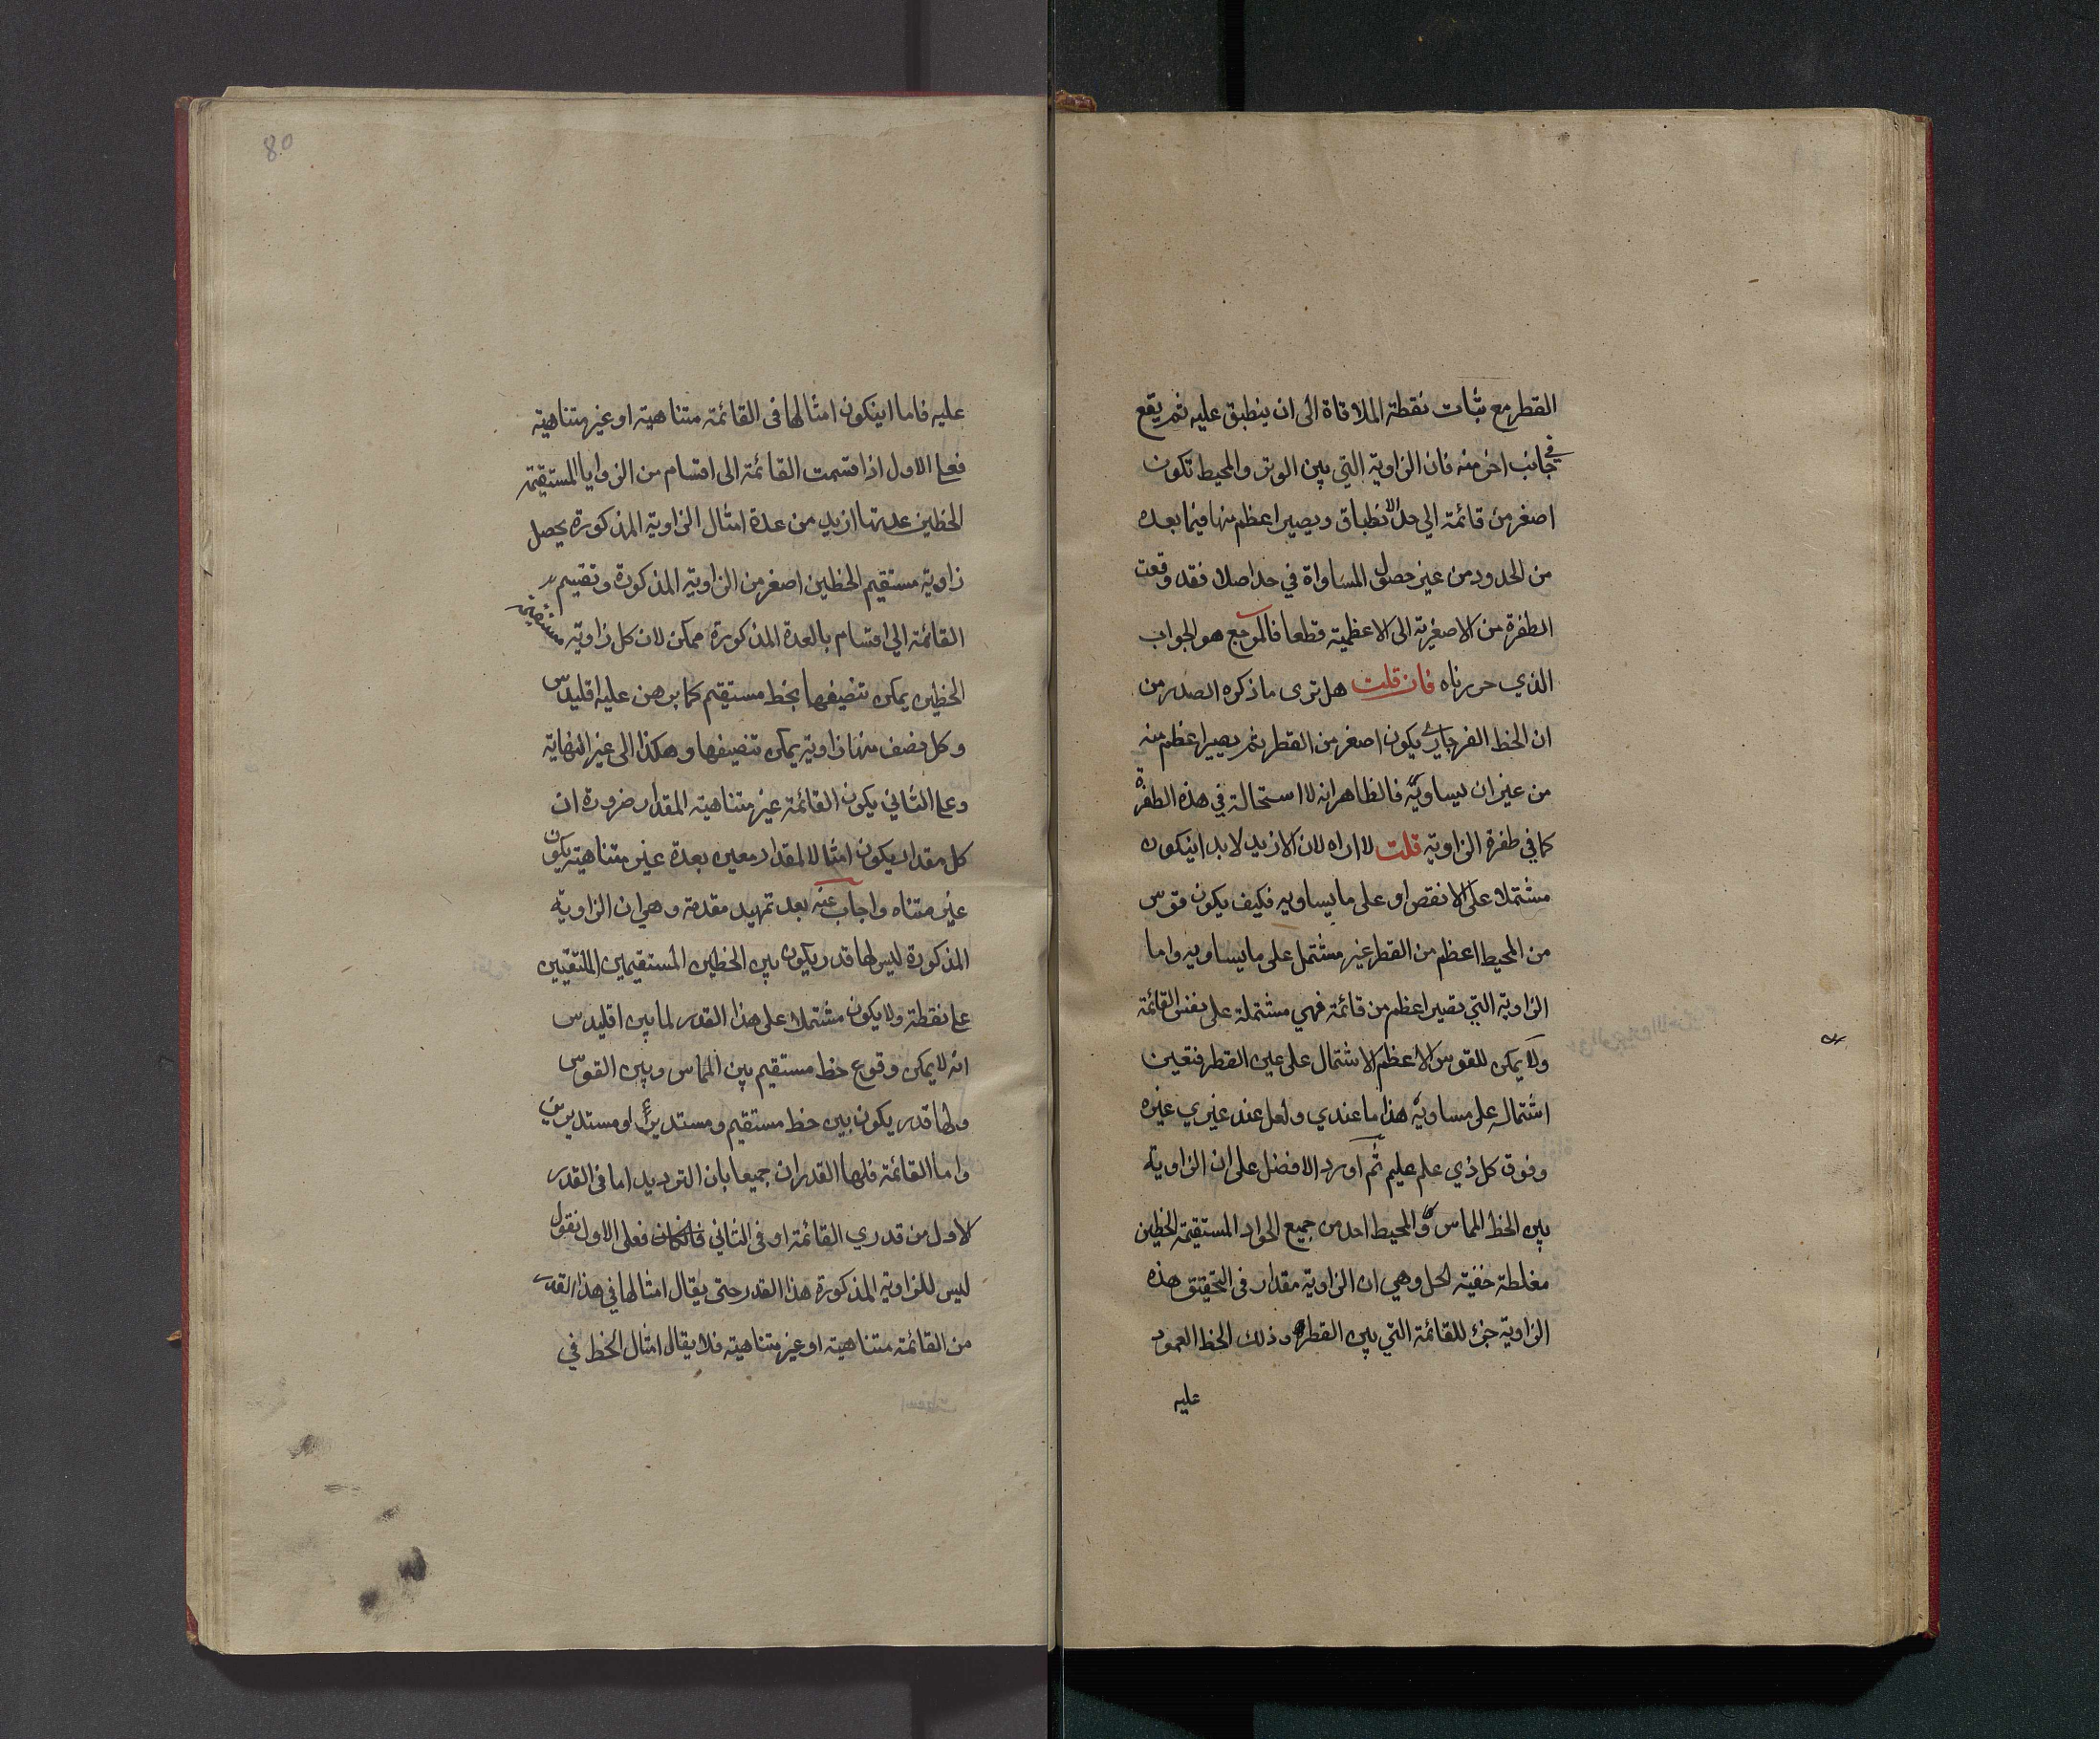 القطر مع ثبات نقطة الملاقاة الى ان ينطبق عليه ثم يقع
في جانب اخر منه فان الزاوية التي بين الوتر والمحيط تكون
اصغر من قائمة الى حد الانطباق ويصير اعظم منها فيما بعده
من الحدود من غير حصول المساواة في حد اصلا فقد وقعت
الطفرة من الاصغرية الى الاعظمية قطعا فالمرجع هو الجواب
الذي حررناه فان قلت هل ترى ما ذكره الصدر من
ان الخط الفرجاري يكون اصغر من القطر ثم يصير اعظم منه
من غير ان يساويه فالظاهر انه لا استحالة في هذه الطفرة
كما في طفرة الزاوية قلت لا اراه لان الازيد لا بد اينكون
مشتملا على الانقص او على ما يساويه فكيف يكون قوس
من المحيط اعظم من القطر غير مشتمل على ما يساويه واما
الزاوية التي تصير اعظم من قائمة فهي مشتملة على نفس القائمة
ولا يمكن للقوس الاعظم الاشتمال على عين القطر فتعين
اشتماله على مساويه هذا ما عندي ولعل عند غيري غيره
وفوق كل ذي علم عليم ثم اورد الافضل على ان الزاوية
بين الخط المماس والمحيط احد من جميع الحواد المستقيمة الخطين
مغلطة خفية الحل وهي ان الزاوية مقدار في التحقيق هذه
الزاوية جزء للقائمة التي بين القطر وذلك الخط العمود
عليه
80
عليه فاما اينكون امثالها في القائمة متناهية او غير متناهية
فعلى الاول اذا قسمت القائمة الى اقسام من الزوايا المستقيمة
الخطين عدتها ازيد من عدة امثال الزاوية المذكورة يحصل
زاوية مستقيم الخطين اصغر من الزاوية المذكورة وتقسيم
القائمة الى اقسام بالعدة المذكورة ممكن لان كل زاوية مستقيمة
الخطين يمكن تنصيفها بخط مستقيم كما برهن عليه اقليدس
وكل نصف منها زاوية يمكن تنصيفها وهكذا الى غير النهاية
وعلى الثاني يكون القائمة غير متناهية المقدار ضرورة ان
كل مقدار يكون امثالا لمقدار معين بعدة غير متناهية يكون
غير متناه واجاب عنه بعد تمهيد مقدمة وهي ان الزاوية
المذكورة ليس لها قدر يكون بين الخطين المستقيمين الملتقيين
على نقطة ولا يكون مشتملا على هذا القدر لما بين اقليدس
انه لا يمكن وقوع خط مستقيم بين المماس وبين القوس
ولها قدر يكون بين خط مستقيم ومستدير او مستديرين
واما القائمة فلها القدران جميعا بان الترديد اما في القدر
الاول من قدري القائمة او في الثاني فانكان فعلى الاول نقول
ليس للزاوية المذكورة هذا القدر حتى يقال امثالها في هذا القدر
من القائمة متناهية او غير متناهية فلا يقال امثال الخط في